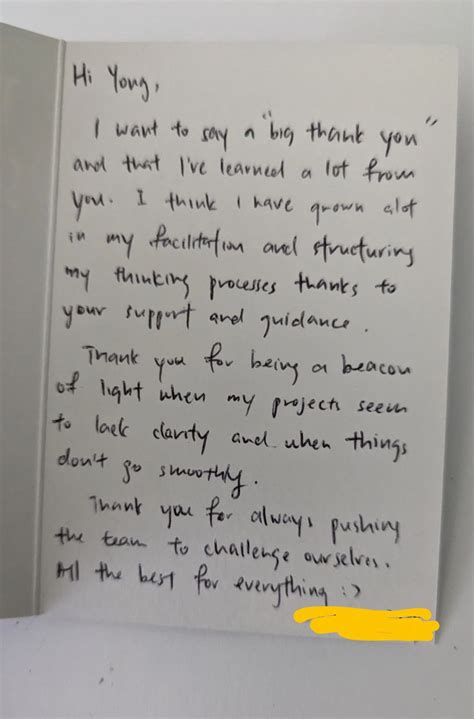 Hi Yong,
I want to say a "big thank you"
and that I've learned a lot from
you. I think I have grown alot
in my facilitation and structuring
my thinking processes thanks to
your support and guidance.
Thank you for being a beacon
of light when my projects seem
to lack clarity and when things
don't go smoothly.
Thank you for always pushing
the team to challenge ourselves.
All the best for everything :)